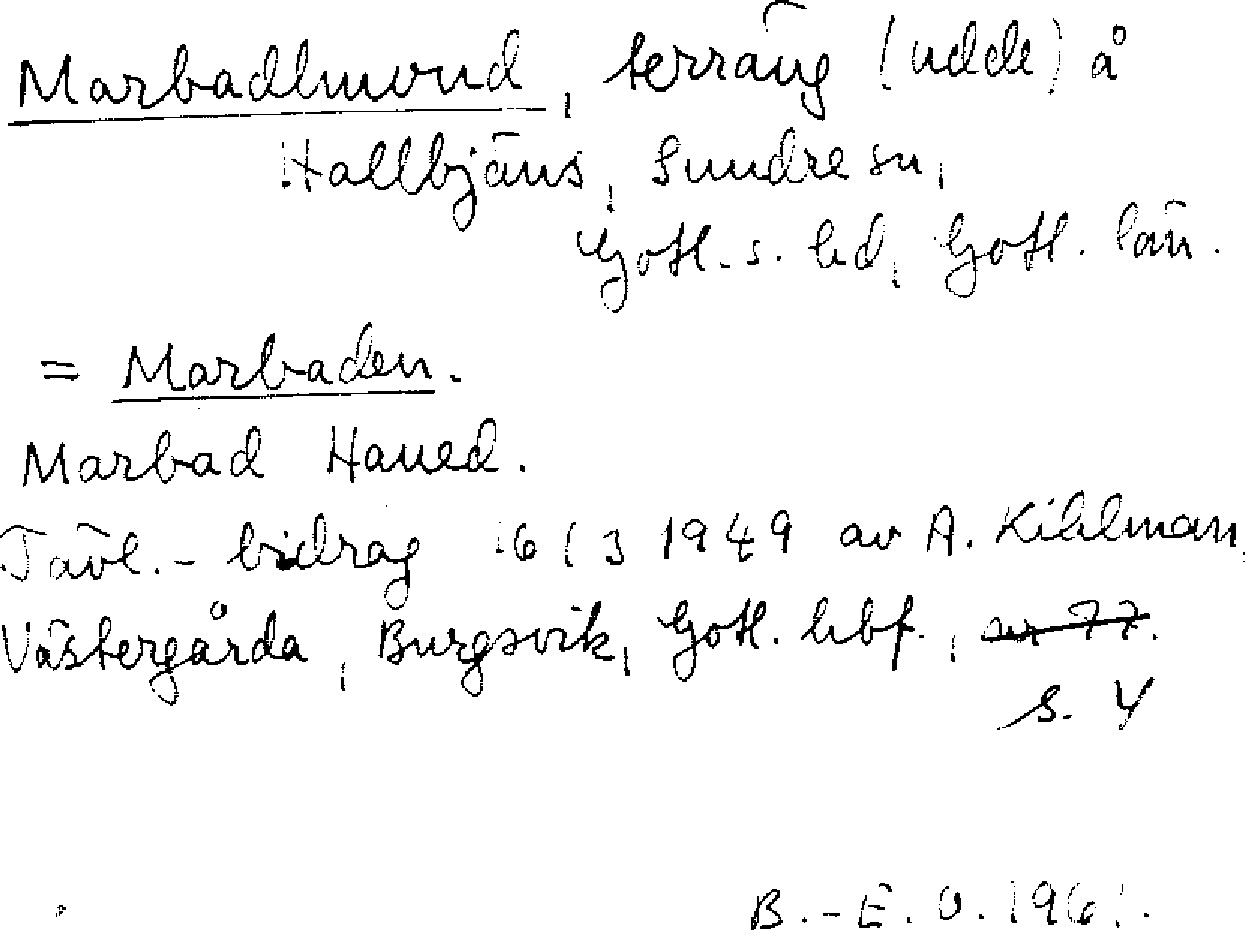 Marbadlmond, terräng (udde) å
Hallbjäns, Sundre sn,
Gotl. s. hd, Gotl. län.
= Marbaden.
Marbad Haued.
Tävl.-bidrag 16/3 1949 av A. Kihlman,
Västergårda, Burgsvik, Gotl. hbf., nr 77.
s. 4
B.-E. O. 1961.